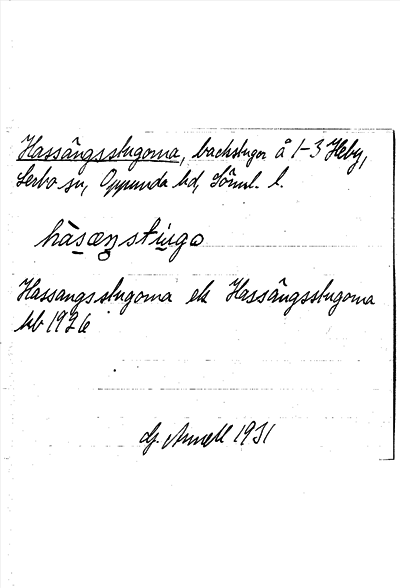 Hassängsstugorna, backstugor å 1-3 Heby,
Lerbo sn, Oppunda hd, Söml. l.
hàsæŋstúgo
Hassangsstugorna el Hassängsstugorna
kb 1926
Dj. Annell 1931